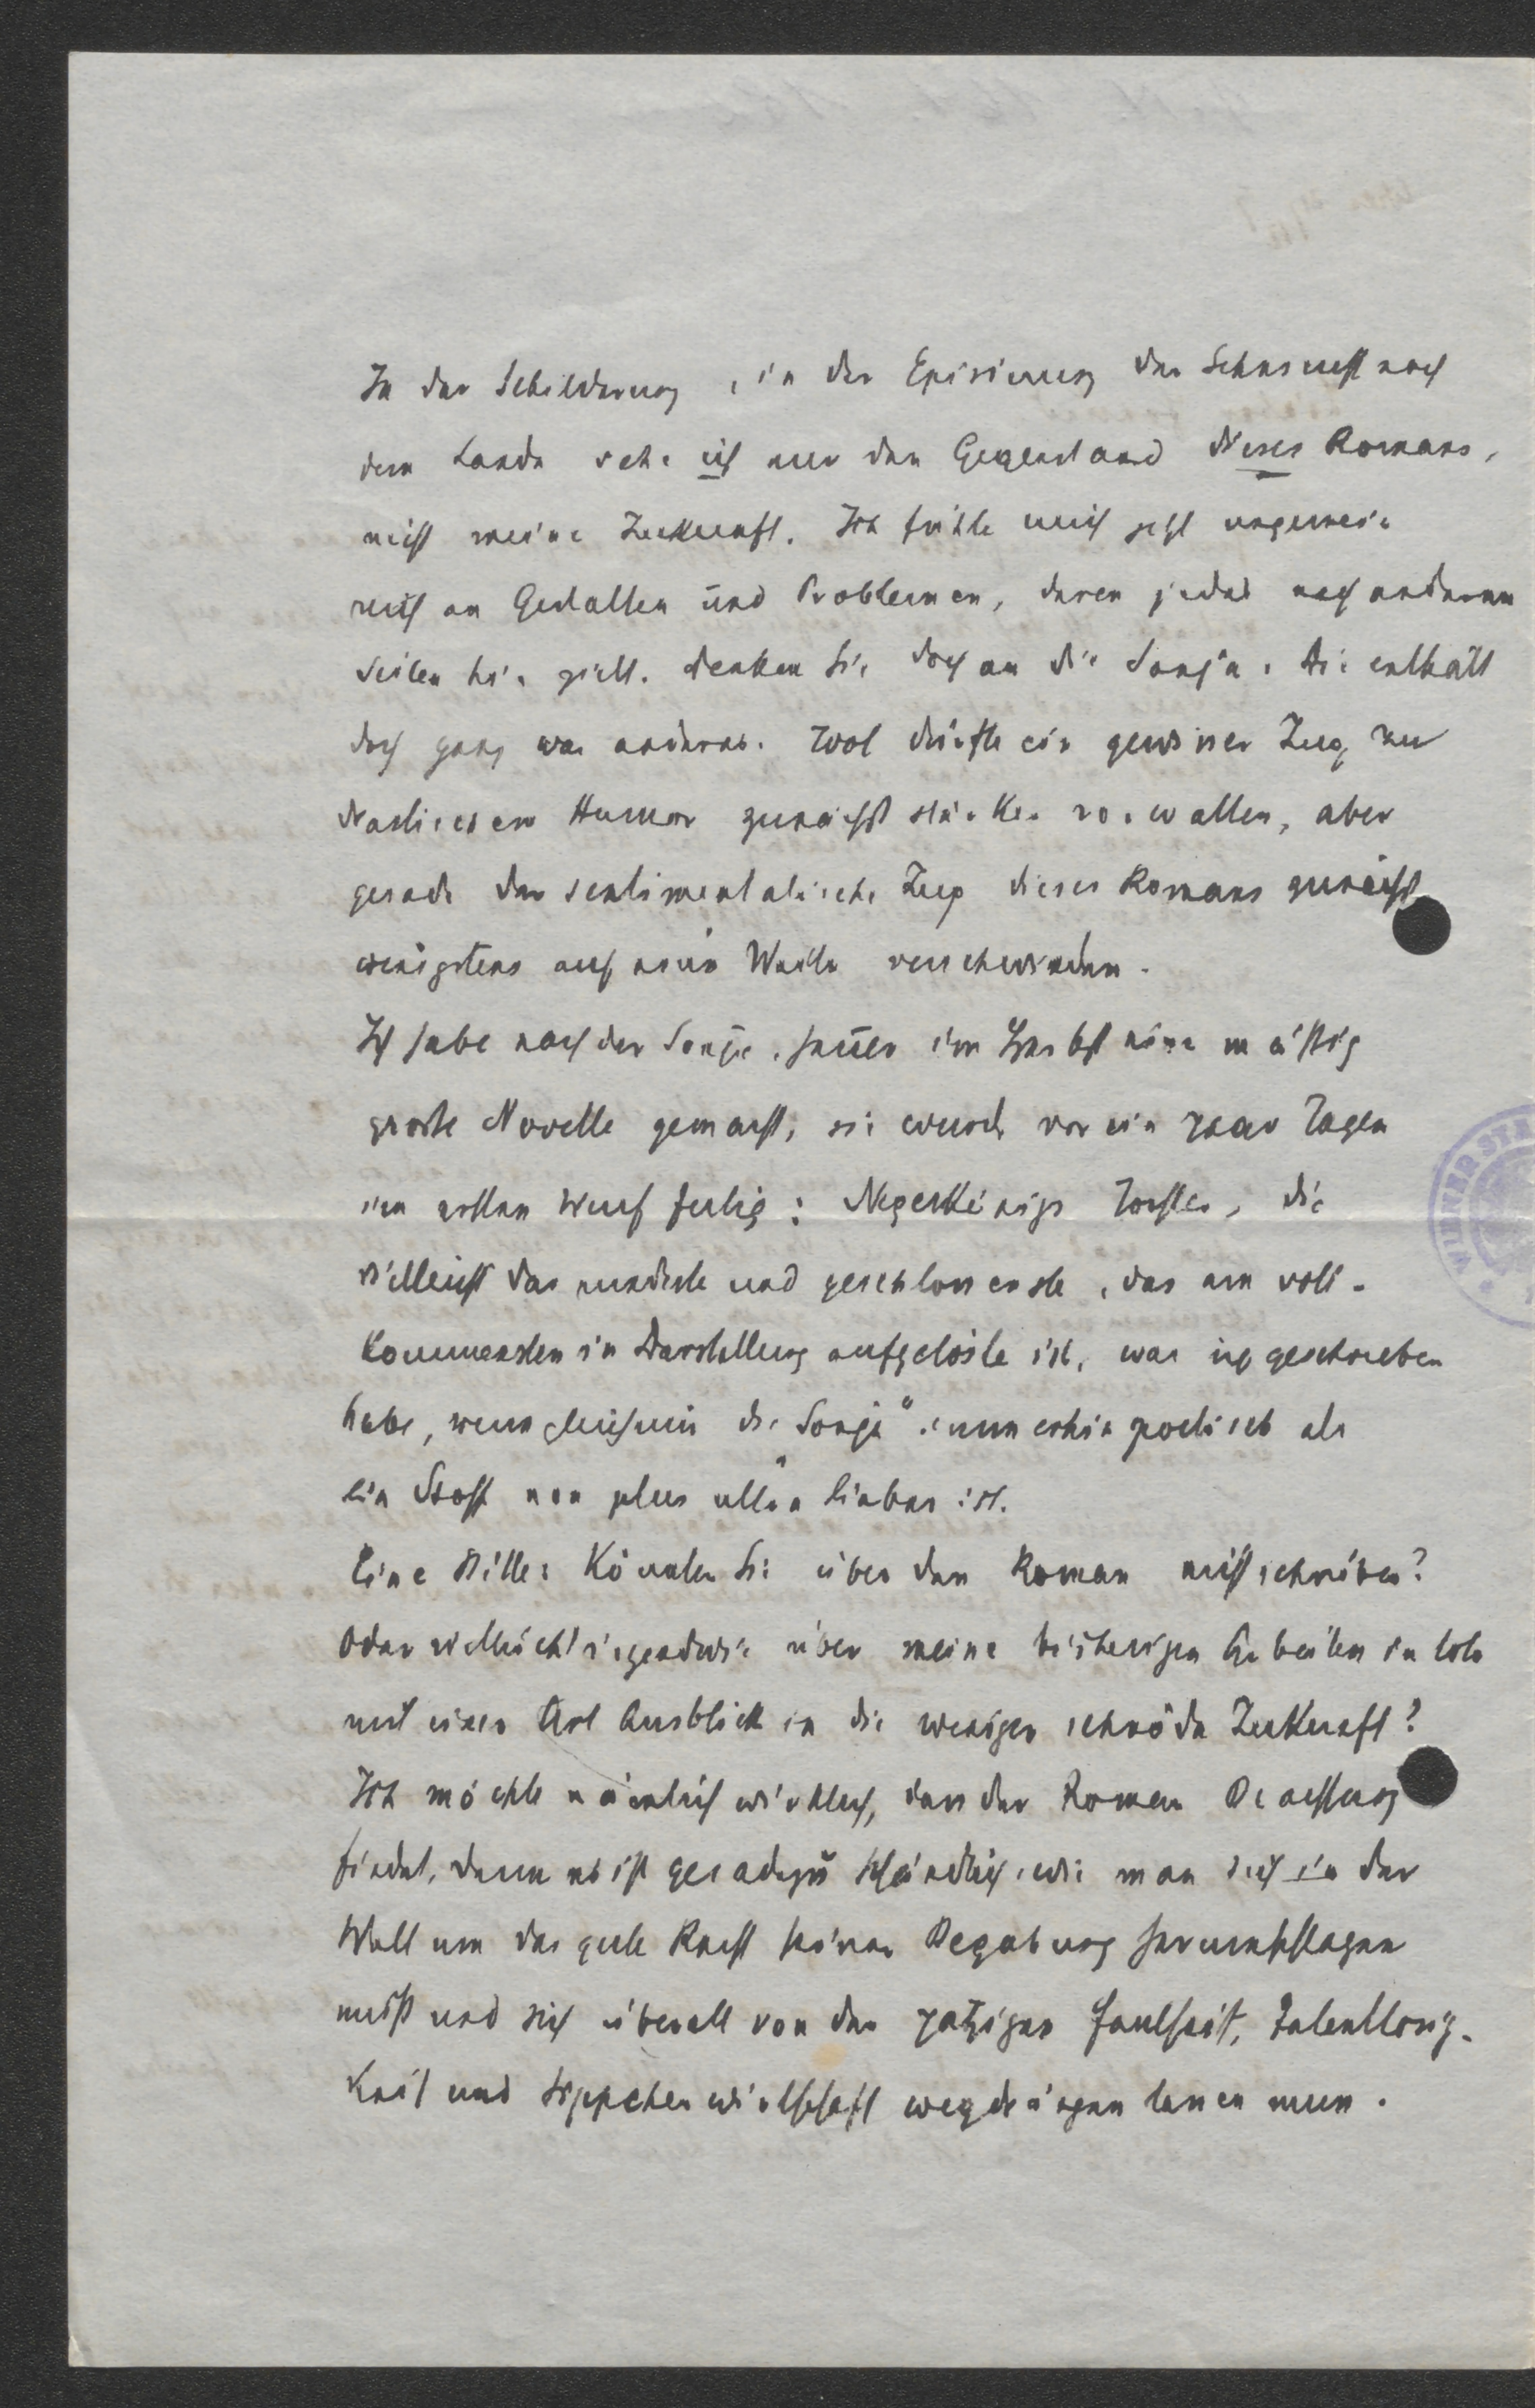 In der Schilderung, in der Episierung der Sehnsucht nach
dem Lande sehe ich nur den Gegenstand dieses Romans,
nicht meine Zukunft. Ich fühle mich jetzt ungemein
reich an Gestalten und Problemen, deren jedes nach anderen
Seiten hin zielt. Denken Sie doch an die Sonja. Die enthält
doch ganz was anderes. Wol dürfte ein gewisser Zug zu
drastischem Humor zunächst stärker vorwalten, aber
gerade der sentimentalische Zug dieses Romans zunächst
wenigstens auf eine Weile verschwinden.
Ich habe nach der Sonja heuer im Herbst eine mäßig
große Novelle gemacht, sie wurde vor ein paar Tagen
im ersten Wurf fertig: Negerkönigs Tochter, die
vielleicht das rundeste und geschlossenste, das am voll-
kommensten in Darstellung aufgelöste ist, was ich geschrieben
habe, wenngleich mir die „Sonja" immerhin poetisch als
ein Stoff non plus ultra lieber ist.
Eine Bitte: Könnten Sie über den Roman nicht schreiben?
Oder vielleicht irgendwie über meine bisherigen Arbeiten in toto
mit einer Art Ausblick in die weniger schnöde Zukunft?
Ich möchte nämlich wirklich, dass der Roman Beachtung
findet, denn es ist geradezu schändlich, wie man sich in der
Welt um das gute Recht seiner Begabung herumschlagen
muß und sich überall von der patzigen Faulheit, Talentlosig-
keit und Sippchenwirtschaft wegdrängen lassen muss.